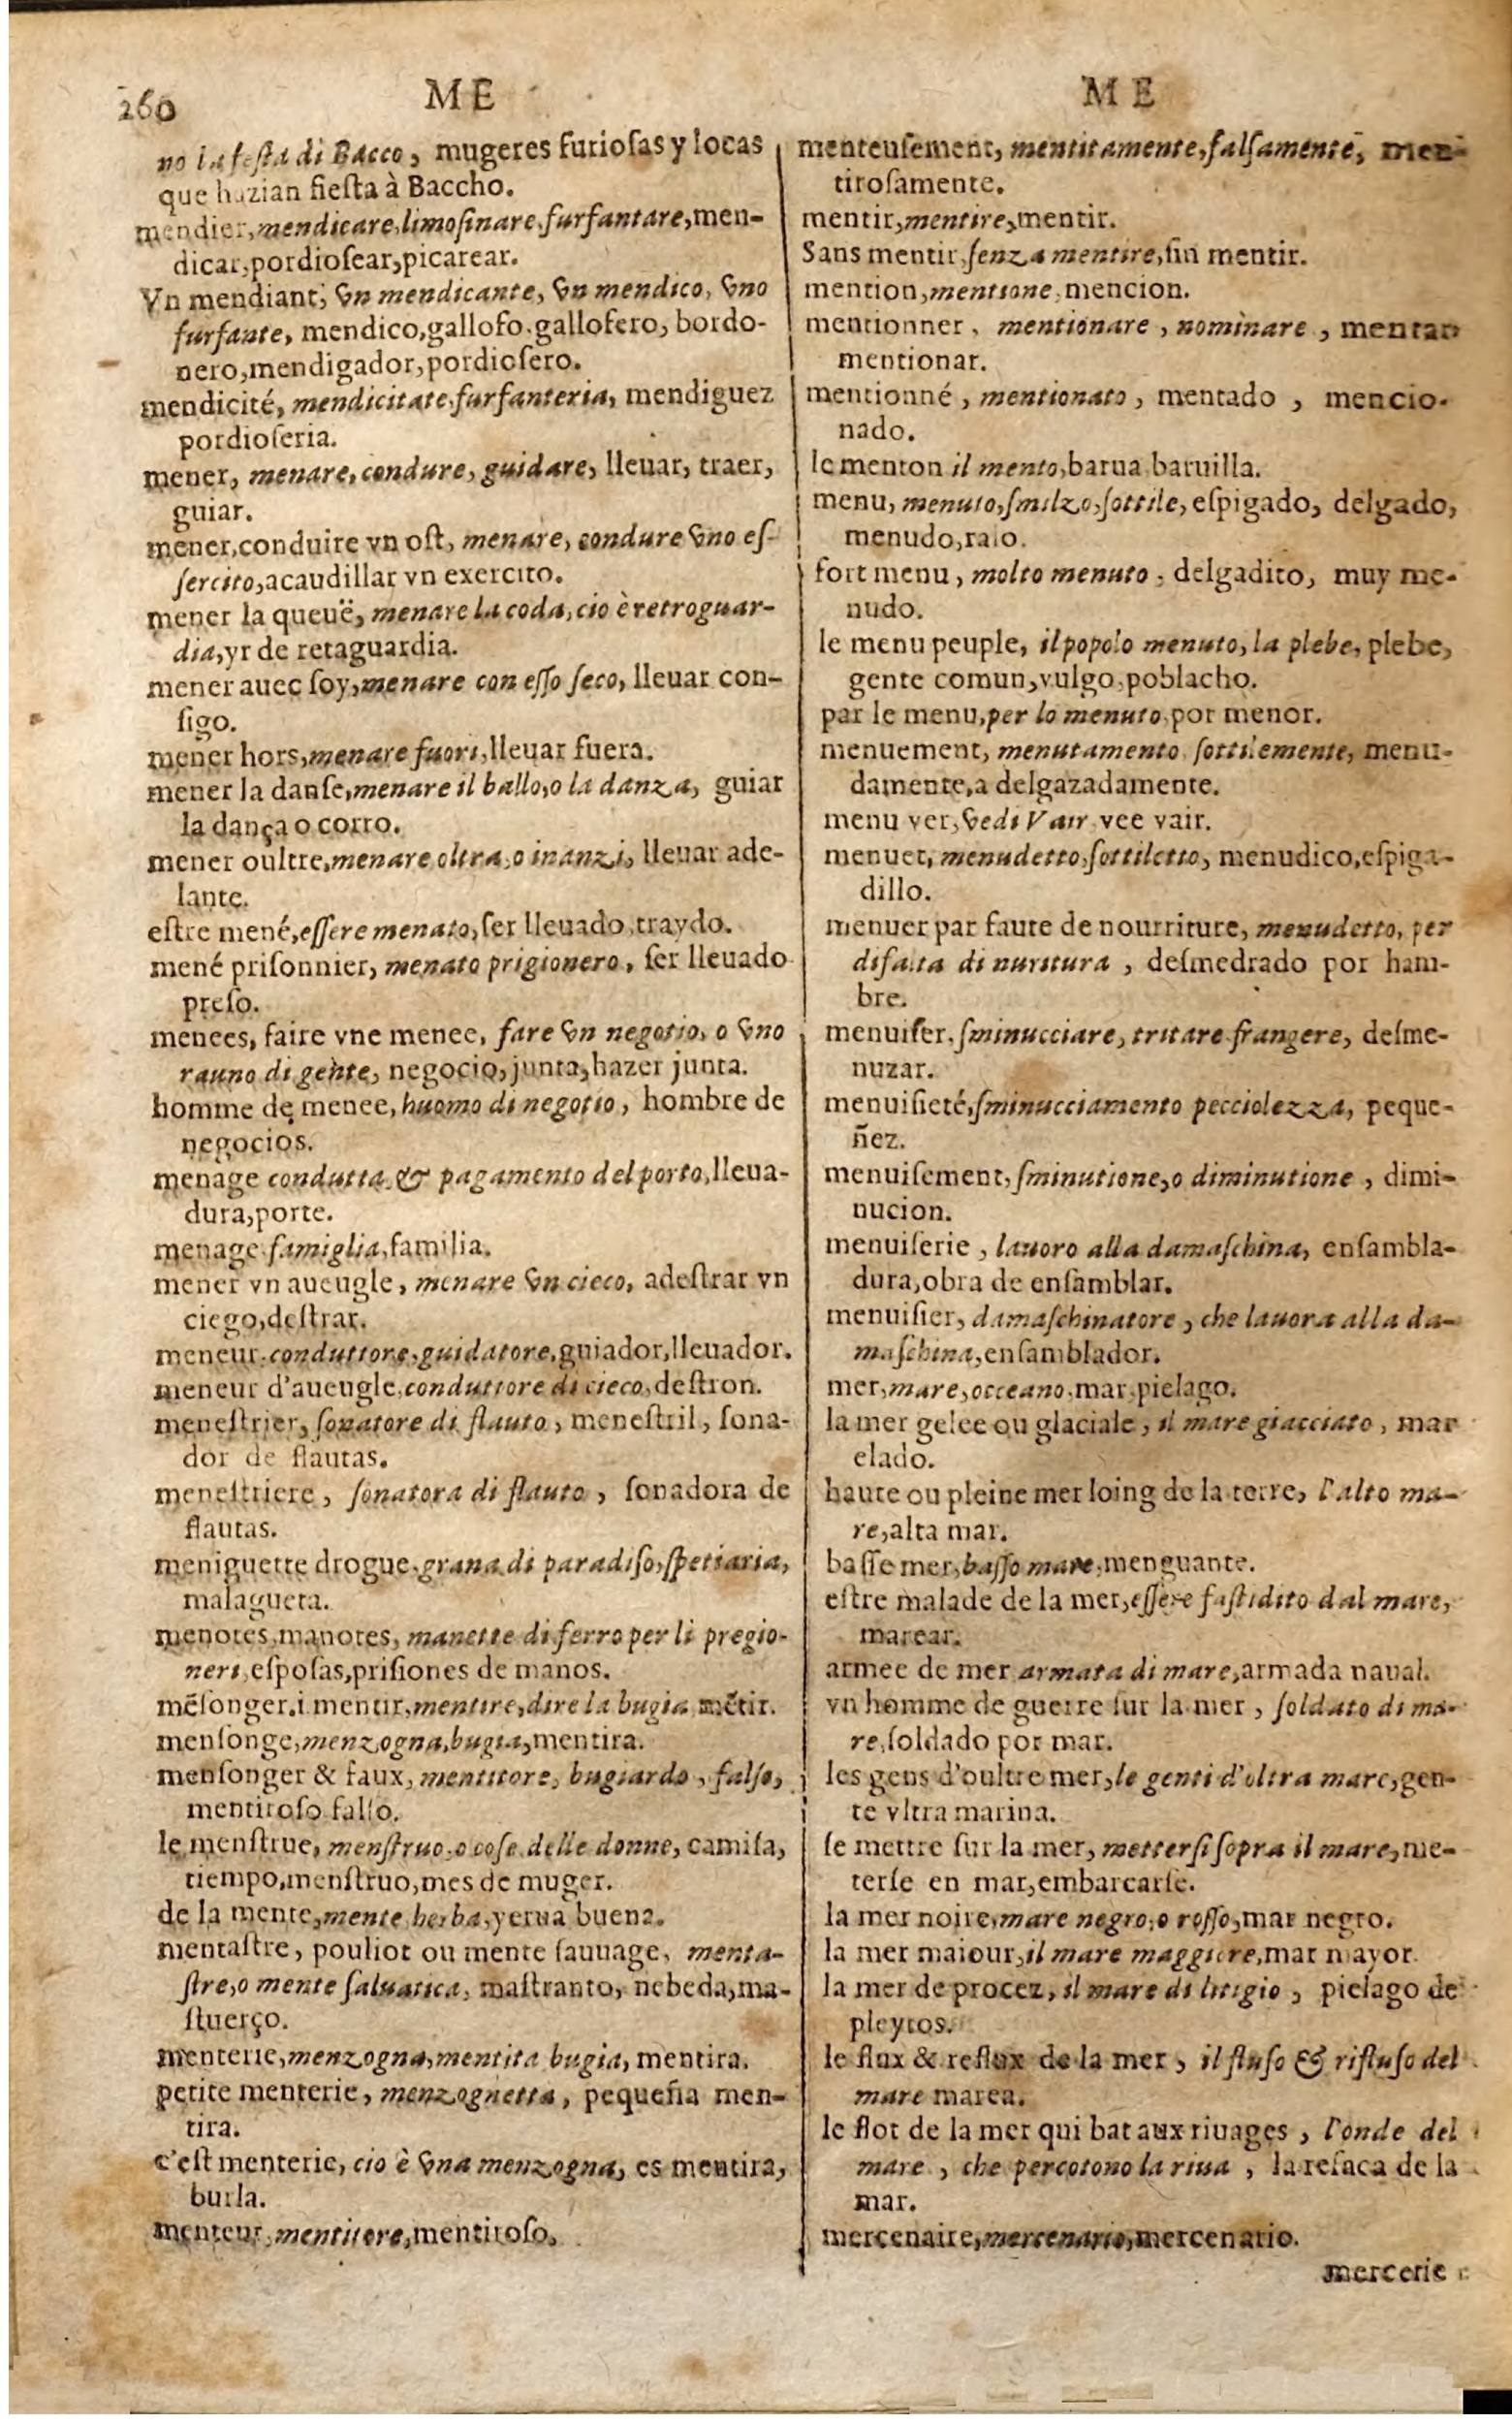 260
ME
no la festa di Bacco, mugeres furiosas y locas
que hazian fiesta à Baccho.
mendier, mendicare, limosinare, furfantare, men-
dicar, pordiosear, picarear.
Vn mendiant, vn mendicante, vn mendico, vno
furfante, mendico, gallofo, gallofero, bordo-
nero, mendigador, pordiosero.
mendicité, mendicitate, furfanteria, mendiguez
pordioseria.
mener, menare, condure, guidare, lleuar, traer,
guiar.
mener, conduire vn ost, menare, condure vno es-
sercito, acaudillar vn exercito.
mener la queuë, menare la coda, cio è retroguar-
dia, yr de retaguardia.
mener auec soy, menare con esso seco, lleuar con-
sigo.
mener hors, menare fuori, lleuar fuera.
mener la danse, menare il ballo, o la danza, guiar
la dança o corro.
mener oultre, menare oltra, o inanzi, lleuar ade-
lante.
estre mené, essere menato, ser lleuado, traydo.
mené prisonnier, menato prigionero, ser lleuado
preso.
menees, faire vne menee, fare vn negotio, o vno
rauno di gente, negocio, junta, hazer junta.
homme de menee, huomo di negotio, hombre de
negocios.
menage condutta, & pagamento del porto, lleua-
dura, porte.
menage famiglia, familia.
mener vn aueugle, menare vn cieco, adestrar vn
ciego, destrar.
meneur, conduttore, guidatore, guiador, lleuador.
meneur d'aueugle, conduttore di cieco, destron.
menestrier, sonatore di flauto, menestril, sona-
dor de flautas.
menestriere, sonatora di flauto, sonadora de
flautas.
meniguette drogue, grana di paradiso, spetiaria,
malagueta.
menotes, manotes, manette di ferro per li pregio-
neri, esposas, prisiones de manos.
mẽsonger, i. mentir, mentire, dire la bugia mẽtir.
mensonge, menzogna, bugia, mentira.
mensonger & faux, mentitore, bugiardo, falso,
mentiroso falso.
le menstrue, menstruo, o cose delle donne, camisa,
tiempo, menstruo, mes de muger.
de la mente, mente herba, yerua buena.
mentastre, pouliot ou mente sauuage, menta-
stre, o mente saluatica, mastranto, nebeda, ma-
stuerço.
menterie, menzogna, mentita bugia, mentira.
petite menterie, menzognetta, pequeña men-
tira.
c'est menterie, cio è vna menzogna, es mentira,
burla.
menteur, mentitore, mentiroso,
ME
menteusement, mentitamente, falsamente, men-
tirosamente.
mentir, mentire, mentir.
Sans mentir, senza mentire, sin mentir.
mention, mentione, mencion.
mentionner, mentionare, nominare, mentar
mentionar.
mentionné, mentionato, mentado, mencio-
nado.
le menton il mento, barua baruilla.
menu, menuto, smilzo, sottile, espigado, delgado,
menudo, ralo.
fort menu, molto menuto, delgadito, muy me-
nudo.
le menu peuple, il popolo menuto, la plebe, plebe,
gente comun, vulgo, poblacho.
par le menu, per lo menuto, por menor.
menuement, menutamento, sottilemente, menu-
damente, a delgazadamente.
menu ver, vedi Vair, vee vair.
menuet, menudetto, sottiletto, menudico, espiga-
dillo.
menuer par faute de nourriture, menudetto, per
difalta di nuritura, desmedrado por ham-
bre.
menuiser, sminucciare, tritare frangere, desme-
nuzar.
menuisieté, sminucciamento pecciolezza, peque-
ñez.
menuisement, sminutione, o diminutione, dimi-
nucion.
menuiserie, lauoro alla damaschina, ensambla-
dura, obra de ensamblar.
menuisier, damaschinatore, che lauora alla da-
maschina, ensamblador.
mer, mare, occeano, mar, pielago.
la mer gelee ou glaciale, il mare giacciato, mar
elado.
haute ou pleine mer loing de la terre, l'alto ma-
re, alta mar.
basse mer, basso mare, menguante.
estre malade de la mer, essere fastidito dal mare,
marear.
armee de mer armata di mare, armada naual.
vn homme de guerre sur la mer, soldato di ma-
re, soldado por mar.
les gens d'oultre mer, le genti d'oltra mare, gen-
te vltra marina.
se mettre sur la mer, mettersi sopra il mare, me-
terse en mar, embarcarse.
la mer noire, mare negro, o rosso, mar negro.
la mer maiour, il mare maggiore, mar mayor.
la mer de procez, il mare di litigio, pielago de
pleytos.
le flux & reflux de la mer, il fluso & rifluso del
mare marea.
le flot de la mer qui bat aux riuages, l'onde del
mare, che percotono la riua, la resaca de la
mar.
mercenaire, mercenario, mercenario.
mercerie